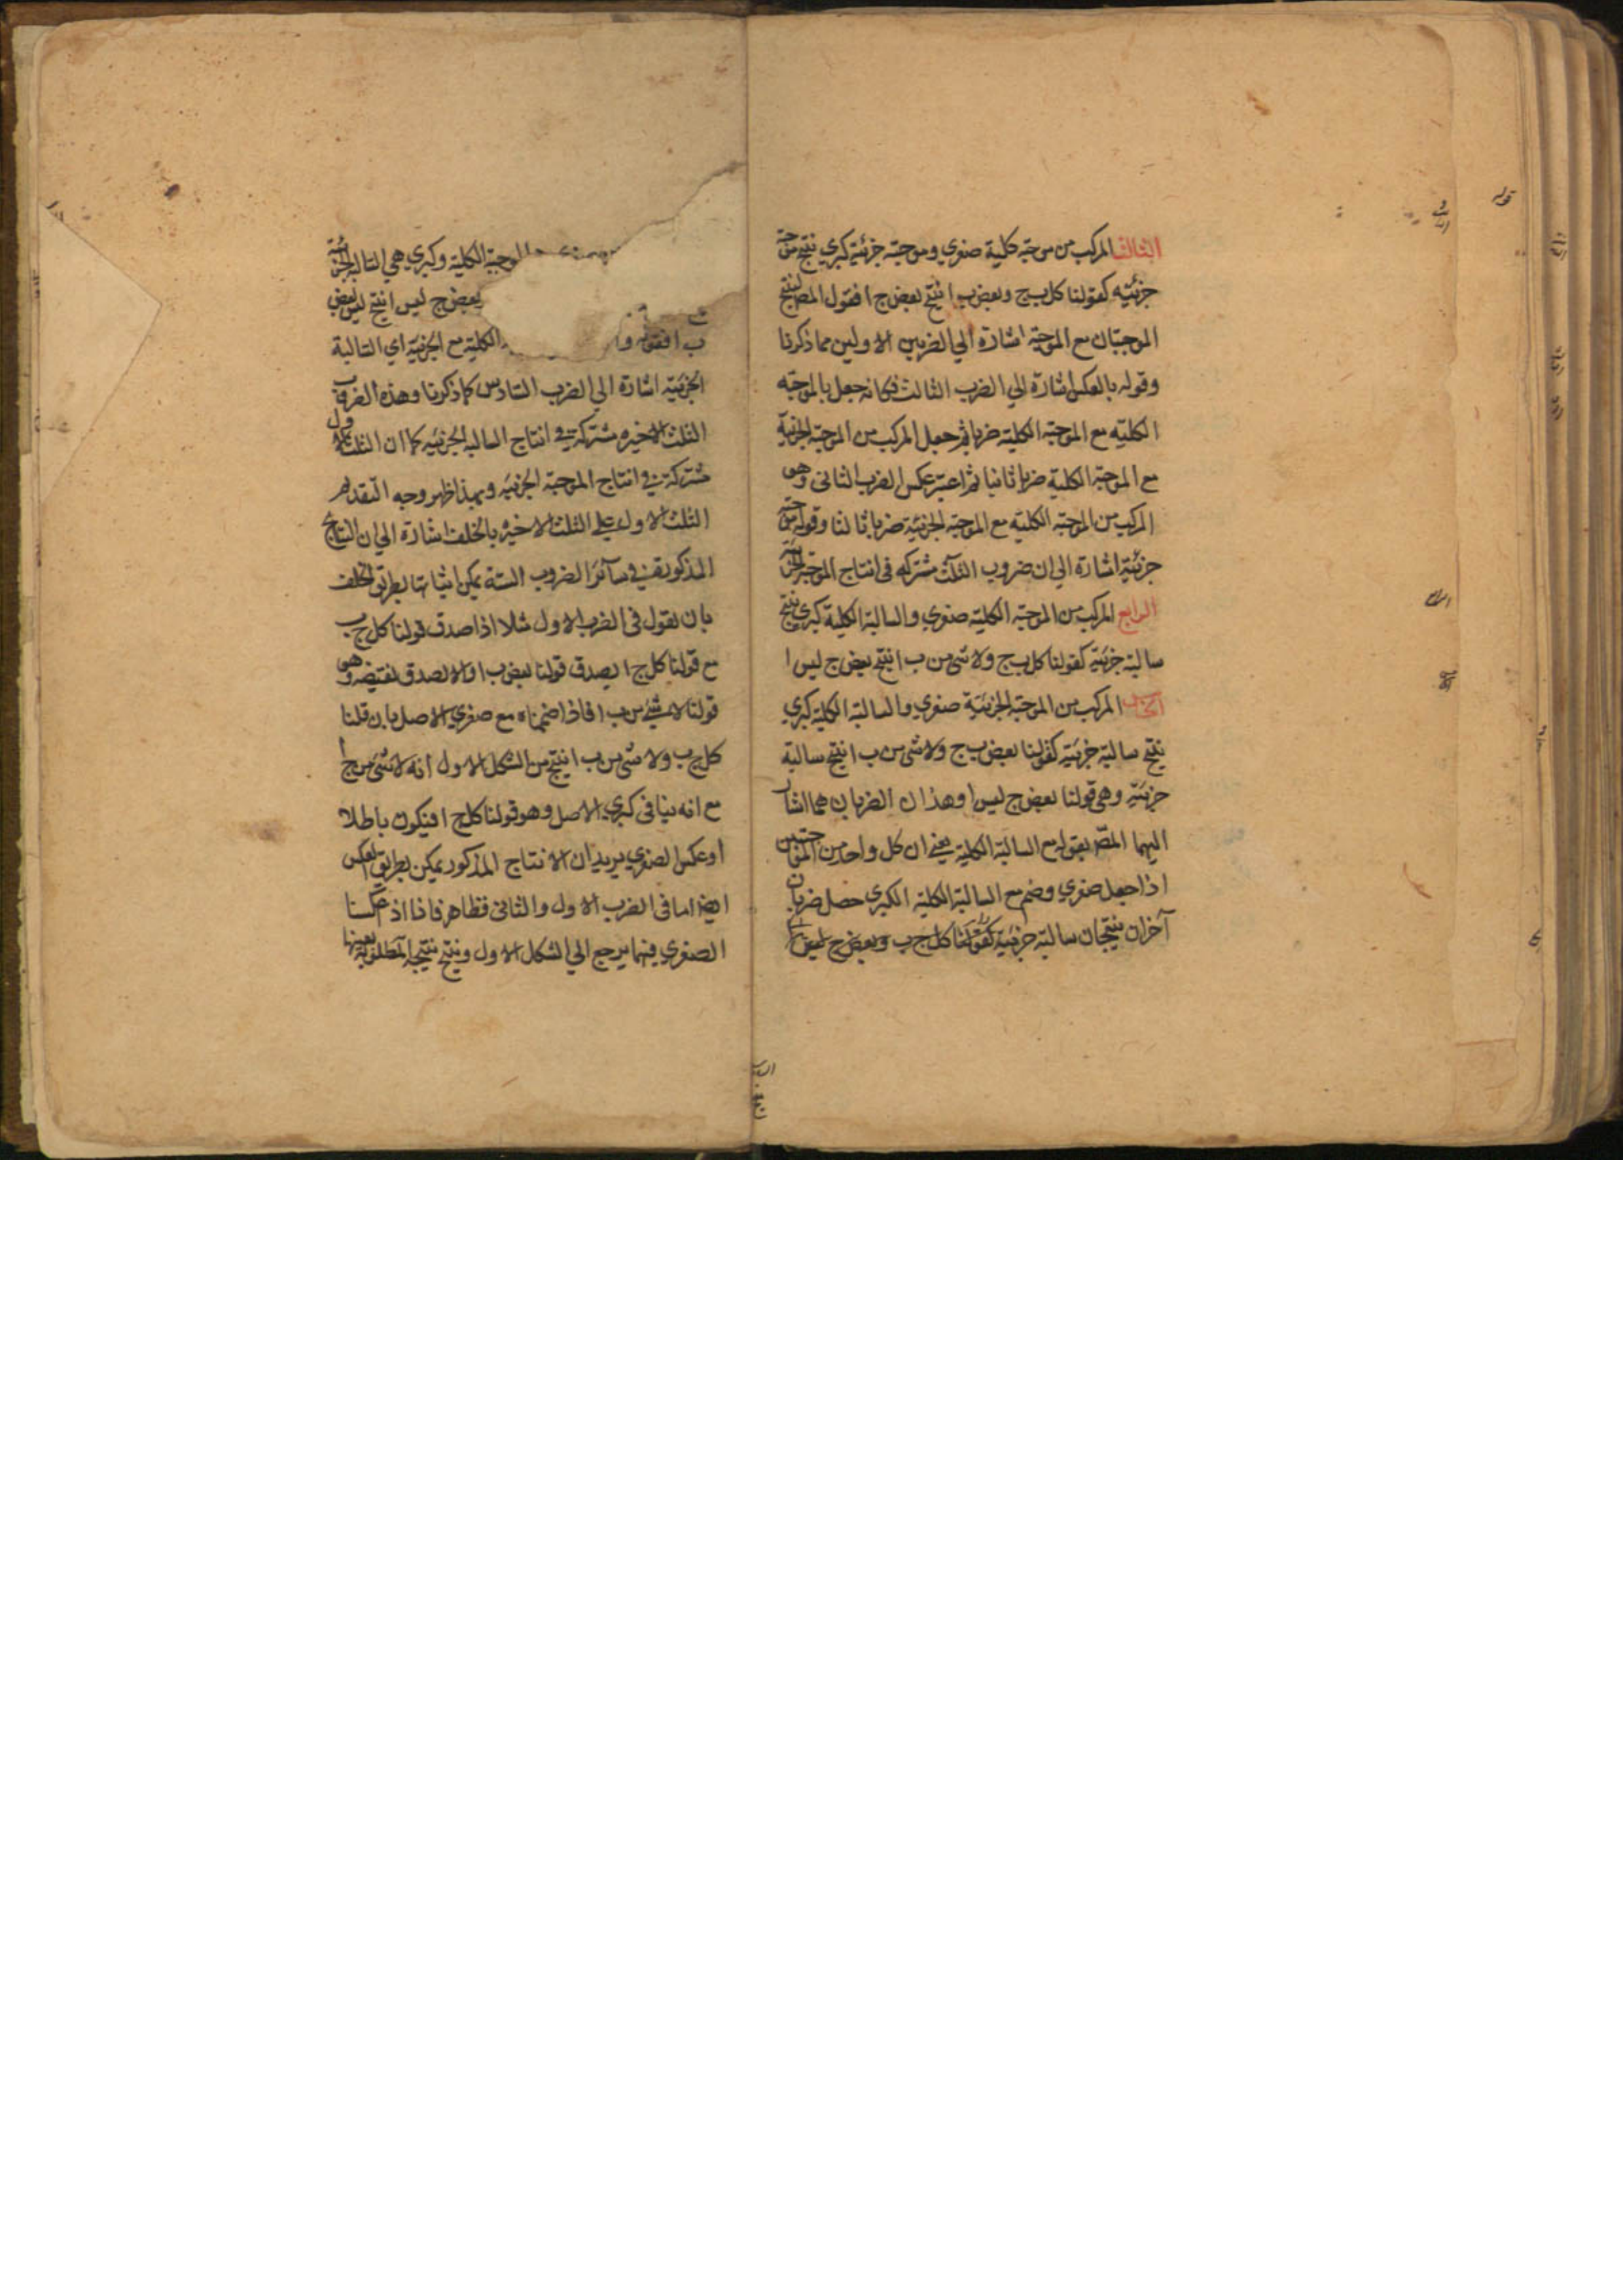 الثالث المركب من موجبة كلية صغري وموجبة جزئية كبري ينتج موجبة
جزئيه كقولنا كل ب ج وبعض ب ا ينتج بعض ج ا فقول المص لينتج
الموجبتان مع الموجبة اشارة الي الضربين الاولين مما ذكرنا
وقوله بالعكس اشارة الي الضرب الثالث فكانه جعل بالموجبه
الكليه مع الموجبة الكلية ضربا ثم جعل المركب من الموجبة الجزئية
مع الموجبة الكلية ضربا ثانيا ثم اعتبر عكس الضرب الثانى وهو
المركب من الموجبة الكليه مع الموجبة الجزئية ضربا ثالثا وقوله موجبة
جزئية اشارة الي ان ضروب الثلث مشتركه فى انتاج الموجبة الجزئية
الرابع المركب من الموجبة الكلية صغري والسالبة الكلية كبرى ينتج
سالبة جزئية كقولنا كل ب ج ولا شى من ب ا ينتج بعض ج ليس ا
الخامس المركب من الموجبة الجزئية صغري والسالبة الكلية كبري
ينتج سالبة جزئية كقولنا بعض ب ج ولا شى من ب ا ينتج سالبة
جزئية وهى قولنا بعض ج ليس ا وهذان الضربان هما اشار
اليهما المص بقوله مع السالبة الكلية يعنى ان كل واحد من الموجبتين
اذا جعل صغري وضم مع السالبة الكلية الكبرى حصل ضربان
آخران ينتجان سالبة جزئية كقولنا كل ج ب وبعض ج ليس ا
الموجبة الكلية وكبري هي السالبة الجزئية
بعض ج ليس ا ينتج ليس بعض
ب ا فقوله الكلية مع الجزئية اي السالبة
الجزئية اشارة الي الضرب السادس كما ذكرنا وهذه الضروب
الثلث الاخيره مشتركة فى انتاج السالبه الجزئيه كما ان الثلث الاول
مشتركة فى انتاج الموجبة الجزئيه وبهذا ظهر وجه التقديم
الثلث الاول علي الثلث الاخيره بالخلف اشارة الي ان النتائج
المذكورة فى سآئر الضروب الستة يمكن اثباتها بطريق الخلف
بان نقول فى الضرب الاول مثلا اذا صدق قولنا كل ج ب
مع قولنا كل ج ا يصدق قولنا بعض ب ا والا لصدق نقيضه وهو
قولنا لا شئ من ب ا فاذا ضممناه مع صغري الاصل بان قلنا
كل ج ب ولا شى من ب ا ينتج من الشكل الاول انه لا شئ من ج ا
مع انه ينافى كبري الاصل وهو قولنا كل ج ا فيكون باطلا
او عكس الصغري يريد ان الانتاج المذكور يمكن بطريق العكس
ايضا اما فى الضرب الاول والثانى فظاهر فاذا اذ عكسنا
الصغري فيهما يرجع الي الشكل الاول وينتج نتيجة المطلوبة بعينها